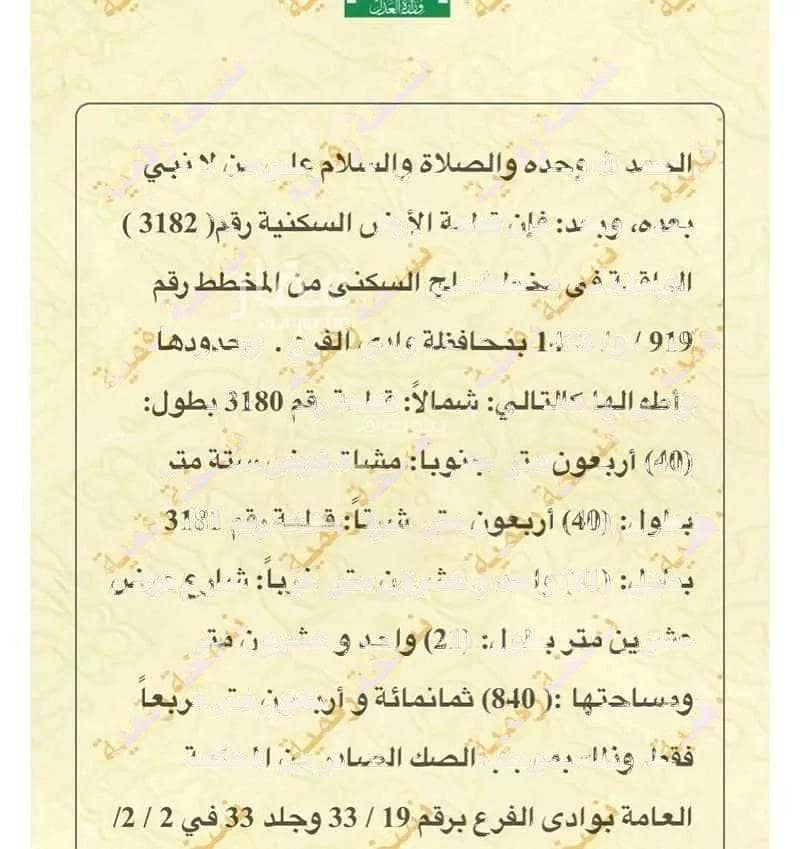 وزارة العدل
الحمد لله وحده والصلاة والسلام على من لا نبي
بعده، وبعد: فإن قطعة الأرض السكنية رقم( 3182 )
الواقعة في مخطط السكنى من المخطط رقم
919 / بمحافظة وادى الفرع . وحدودها
وأطوالها كالتالي: شمالاً: قطعة رقم 3180 بطول:
(40) أربعون متر جنوبا: مشاة عرض ستة متر
بطول: (40) أربعون متر شرقاً: قطعة رقم 3181
بطول: (21) واحد و عشرين متر غرباً: شارع عرض
عشرين متر بطول: (21) واحد و عشرين متر
ومساحتها :( 840) ثمانمائة و أربعون متر مربعاً
فقط وذلك بموجب الصك الصادر من المحكمة
العامة بوادى الفرع برقم 19 / 33 وجلد 33 في 2 / 2/
نسخة رقمية